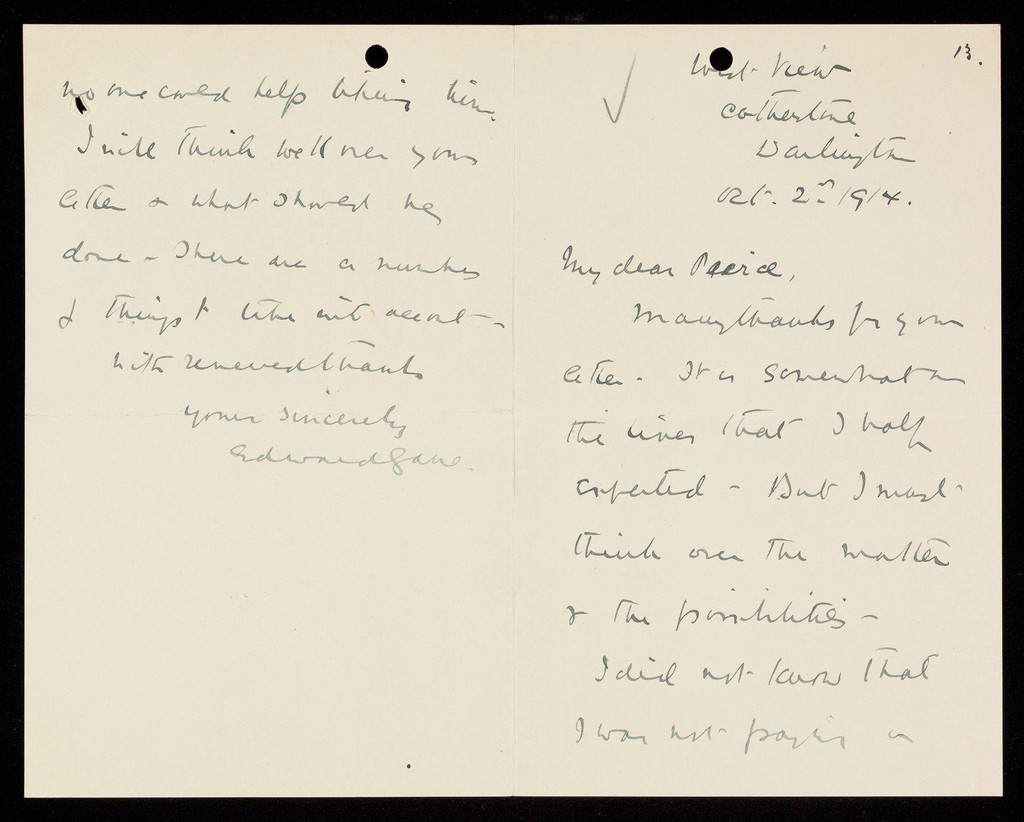 13.
West View
Cotherstone
Darlington
Oct. 2nd 1914.
My dear Peirce,
Many thanks for your
letter - It is somewhat on
the lines that I half
expected - But I must
think over the matter
& the possibilities -
I did not know that
I was not paying
no one could help liking him.
I will think well over your
letter & what should be
done - There are a number
of things to take into account -
with renewed thanks
yours sincerely
Edward